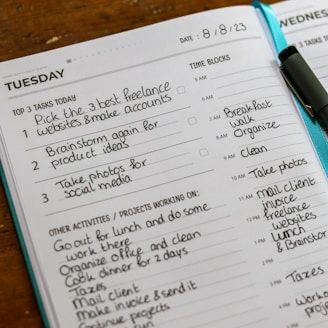 DATE: 8/8/23
TUESDAY
WEDNES
TOP 3 TASKS TODAY
1 Pick the 3 best freelance
websites & make accounts
2 Brainstorm again for
product ideas
3 Take photos for
social media
OTHER ACTIVITIES / PROJECTS WORKING ON:
Go out for lunch and do some
work there
Organize office and clean
Cook dinner for 2 days
Taxes
Mail client
Make invoice & send it
Continue projects
TIME BLOCKS
5 AM
6 AM
7 AM Breakfast
walk
8 AM Organize
9 AM clean
10 AM Take photos
11 AM mail client
invoice
12 PM freelance
websites
1 PM lunch
2 PM & Brainstor
3 PM Taxes
4 PM
TOP 3 TASKS
1
2
3